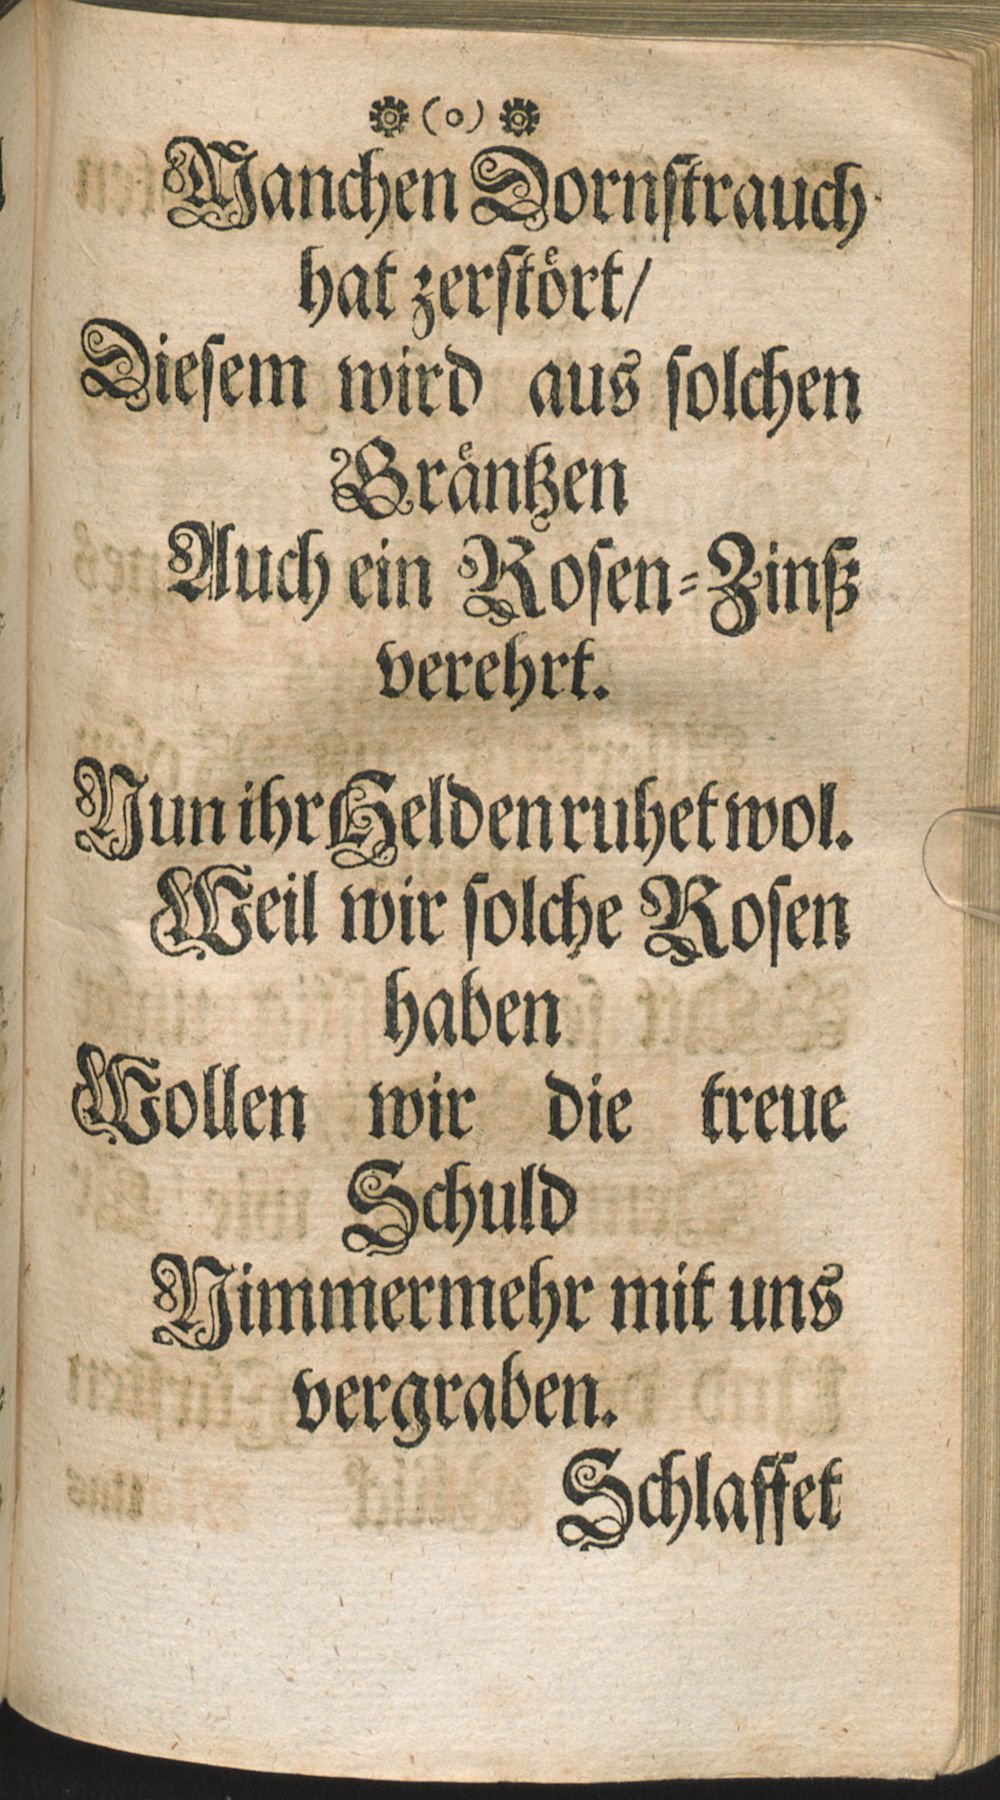 ❁(o)❁
Manchen Dornſtrauch
hat zerſtoͤrt/
Dieſem wird aus ſolchen
Graͤntzen
Auch ein Roſen-Zinß
verehrt.
Nun ihr Helden ruhet wol.
Weil wir ſolche Roſen
haben
Wollen wir die treue
Schuld
Nimmermehr mit uns
vergraben.
Schlaffet